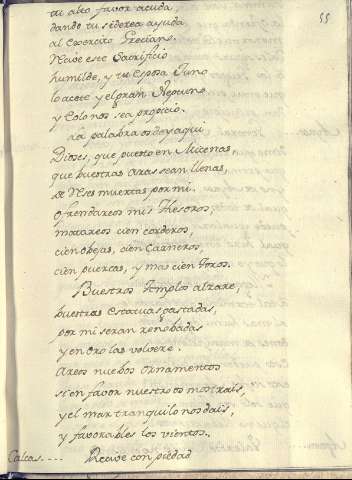 55
tu alto favor acuda,
dando tu siderea ayuda
al Exercito Greciano.
Recive este Sacrificio
humilde, y tu Esposa Juno
lo acete y el gran Neptuno
y Eolo nos sea propicio.
ra palabra os doy aqui
Dioses, que puesto en Micenas,
que buestras aras sean llenas,
de Reses muertas por mi.
Ofrendareos mis Thesoros,
matareos cien corderos,
cien obejas, cien Carneros,
cien puercas, y mas cien toros.
Buestros Templos alzare,
buestras estatuas gastadas,
por mi seran renobadas
y en oro las volvere.
Areos nuebos ornamentos
si en favor nuestro os mostrais,
y el mar tranquilo nos dais,
y favorables los vientos.
Calcas.... Recive con piedad